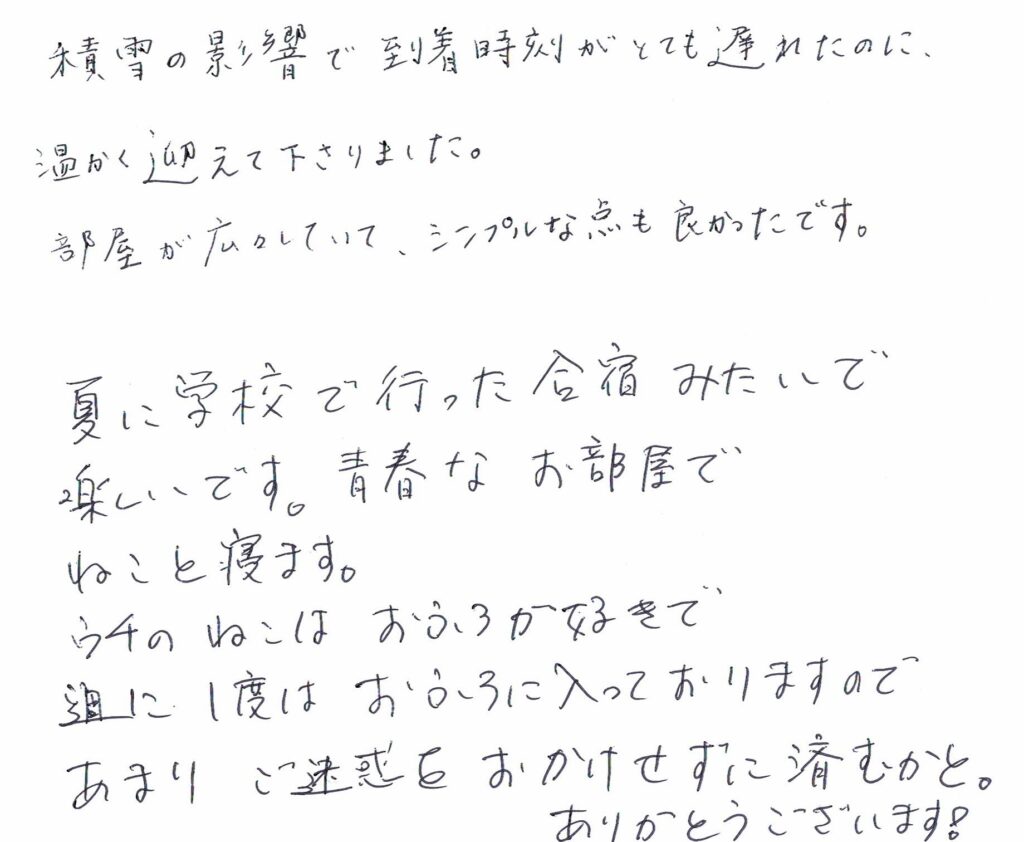 積雪の影響で到着時刻がとても遅れたのに、
温かく迎えて下さりました。
部屋が広々していて、シンプルな点も良かったです。
夏に学校で行った合宿みたいで
楽しいです。青春なお部屋で
ねこと寝ます。
ウチのねこはおふろが好きで
週に1度はおふろに入っておりますので
あまりご迷惑をおかけせずに済むかと。
ありがとうございます!